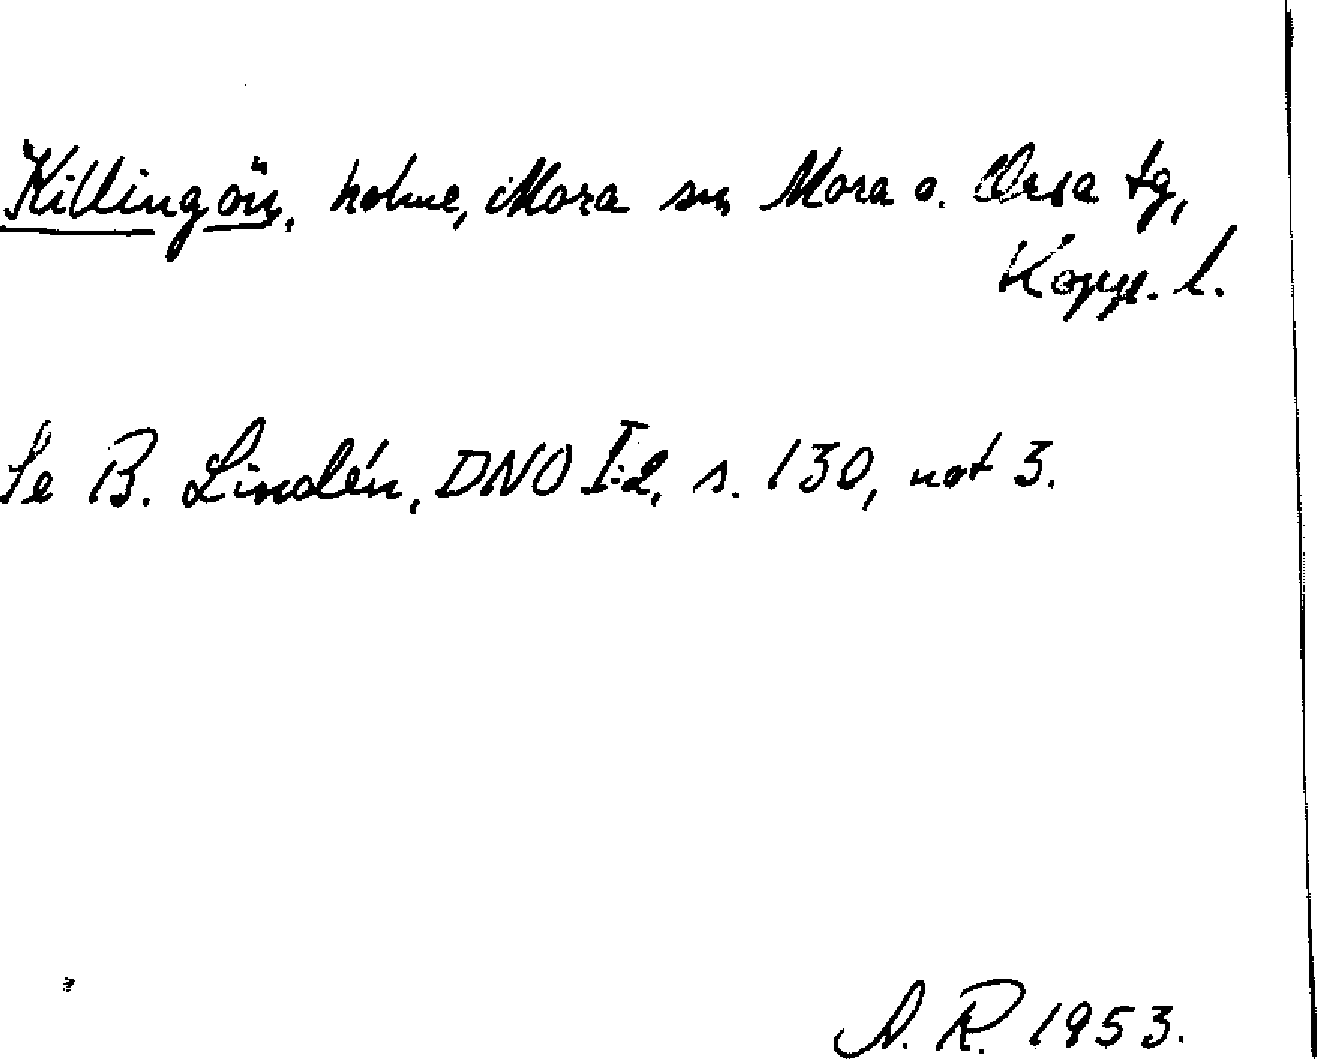 Killingön, holme, Mora sn, Mora o. Orsa tg,
Kopp. l.
Se B. Lindén, DNO I:2, s. 130, not 3.
A. R. 1953.